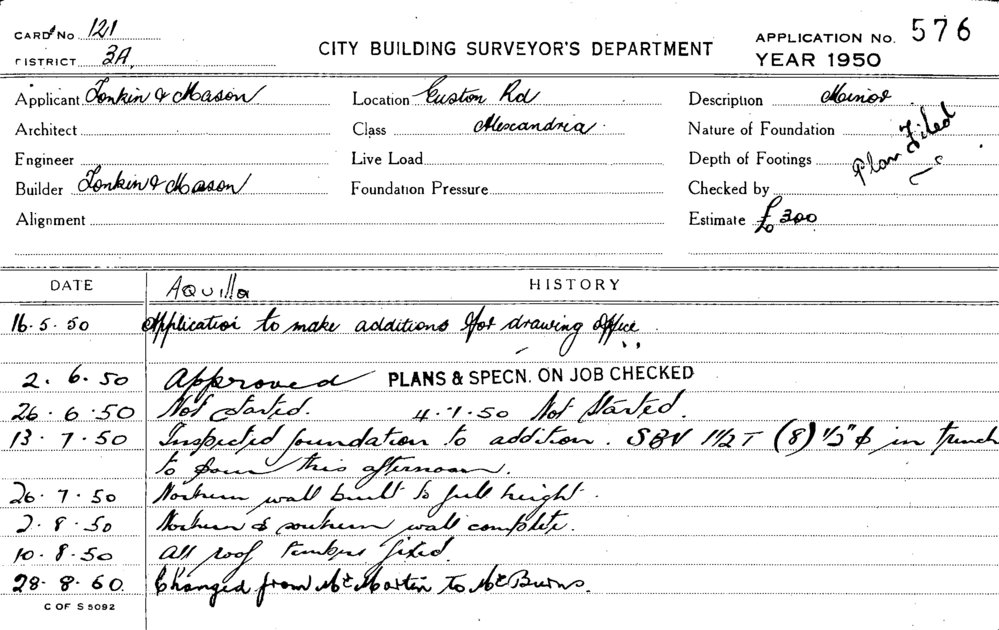 CARD No 121
DISTRICT 3A.
CITY BUILDING SURVEYOR'S DEPARTMENT
APPLICATION No. 576
YEAR 1950
Applicant Tonkin & Mason
Location Euston Rd
Description Minor
Architect
Class Alexandria.
Nature of Foundation
Plan Filed
Engineer
Live Load
Depth of Footings
Builder Tonkin & Mason
Foundation Pressure
Checked by
Alignment
Estimate £300
DATE
Aquilla
HISTORY
16.5.50 Application to make additions for drawing office.
2.6.50 Approved PLANS & SPECN. ON JOB CHECKED
26.6.50 Not Started. 4.7.50 Not Started.
13.7.50 Inspected foundation to addition. 11/2 T (8) 1/2" φ in trench
to pour this afternoon.
26.7.50 Northern wall built to full height.
2.8.50 Northern & southern wall complete.
10.8.50 All roof timbers fixed.
28.8.60. Changed from Mr Martin to Mr Burns.
C OF S 5092